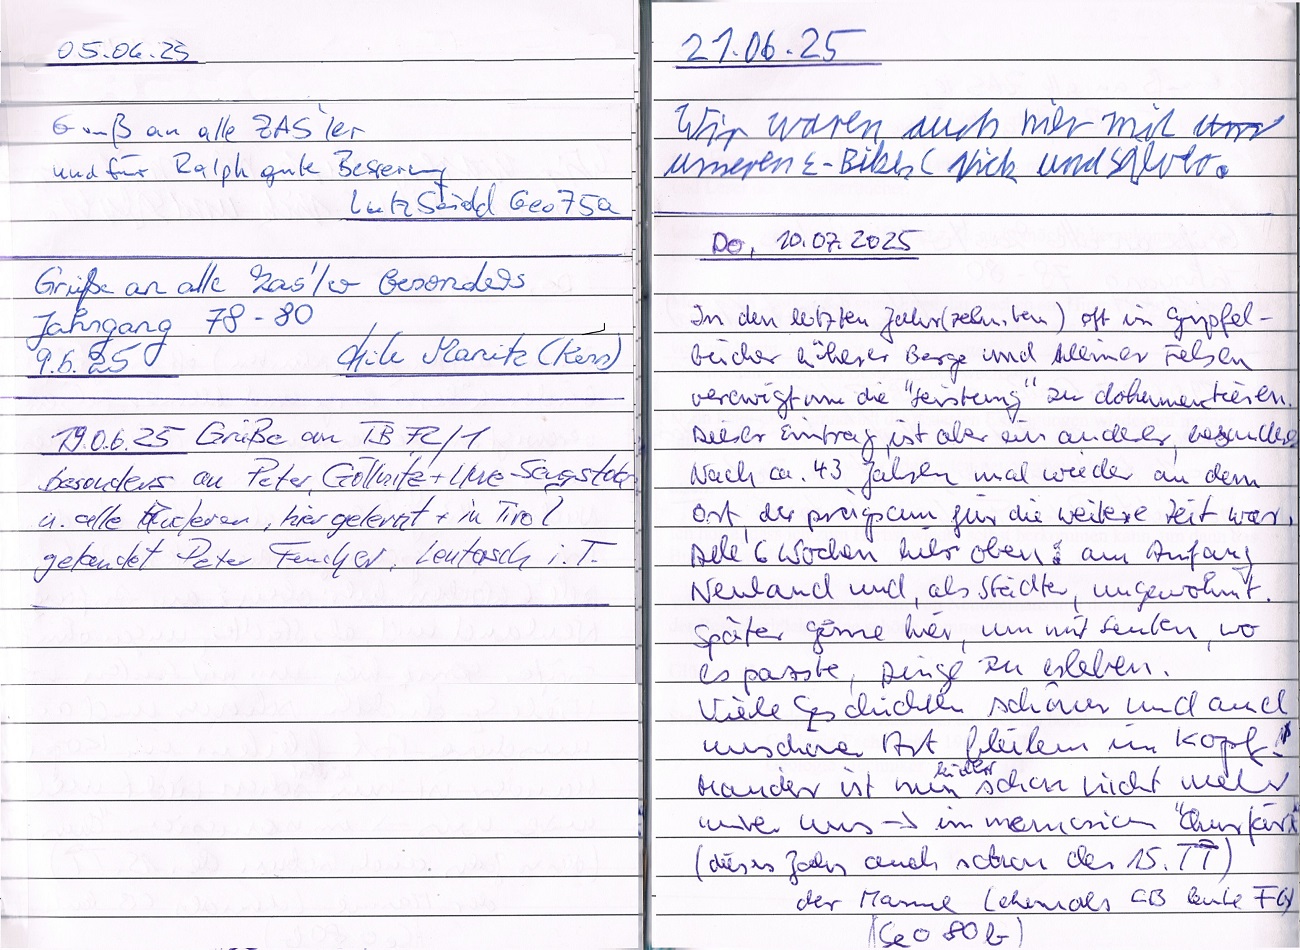 05.06.25
Gruß an alle ZAS'ler
und für Ralph gute Besserung
Lutz Seidel Geo75a
Grüße an alle Zas'ler besonders
Jahrgang 78-80
9.6.25 Maritz (Kers)
19.06.25 Grüße an TB 72/1
besonders an Peter Göllnitz + Uwe
u. alle Anderen, hier gelernt + in Tirol
gelandet Peter Leutasch i. T.
21.06.25
Wir waren auch hier mit
unseren E-Bikes ( Nick und
Do, 10.07.2025
In den letzten Jahr(zehnten) oft in Gipfel-
bücher höherer Berge und kleiner Felsen
verewigt um die "Leistung" zu dokumentieren.
Dieser Eintrag ist aber ein anderer, besonderer
Nach ca. 43 Jahren mal wieder an dem
Ort, der prägsam für die weitere Zeit war.
Alle 6 Wochen hier oben: am Anfang
Neuland und, als Städter, ungewohnt.
Später gerne hier, um mit Leuten, wo
es passte, Dinge zu erleben.
Viele Geschichten schöner und auch
unschöner Art bleiben im Kopf!
Mancher ist nun leider schon nicht mehr
unter uns → in memoriam
(dieses Jahr auch schon der 15. TT)
der Manne (ehemals CB heute FG)
(Geo 80b)